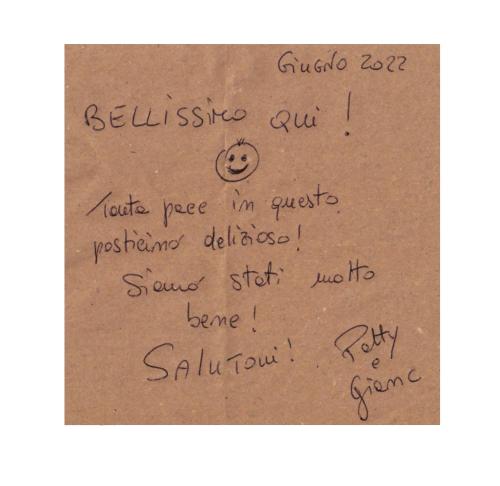 Giugno 2022
BELLISSIMO QUI!
Tanta pace in questo
posticino delizioso!
Siamo stati molto
bene!
SALUTONI!
Patty
e
Gianc